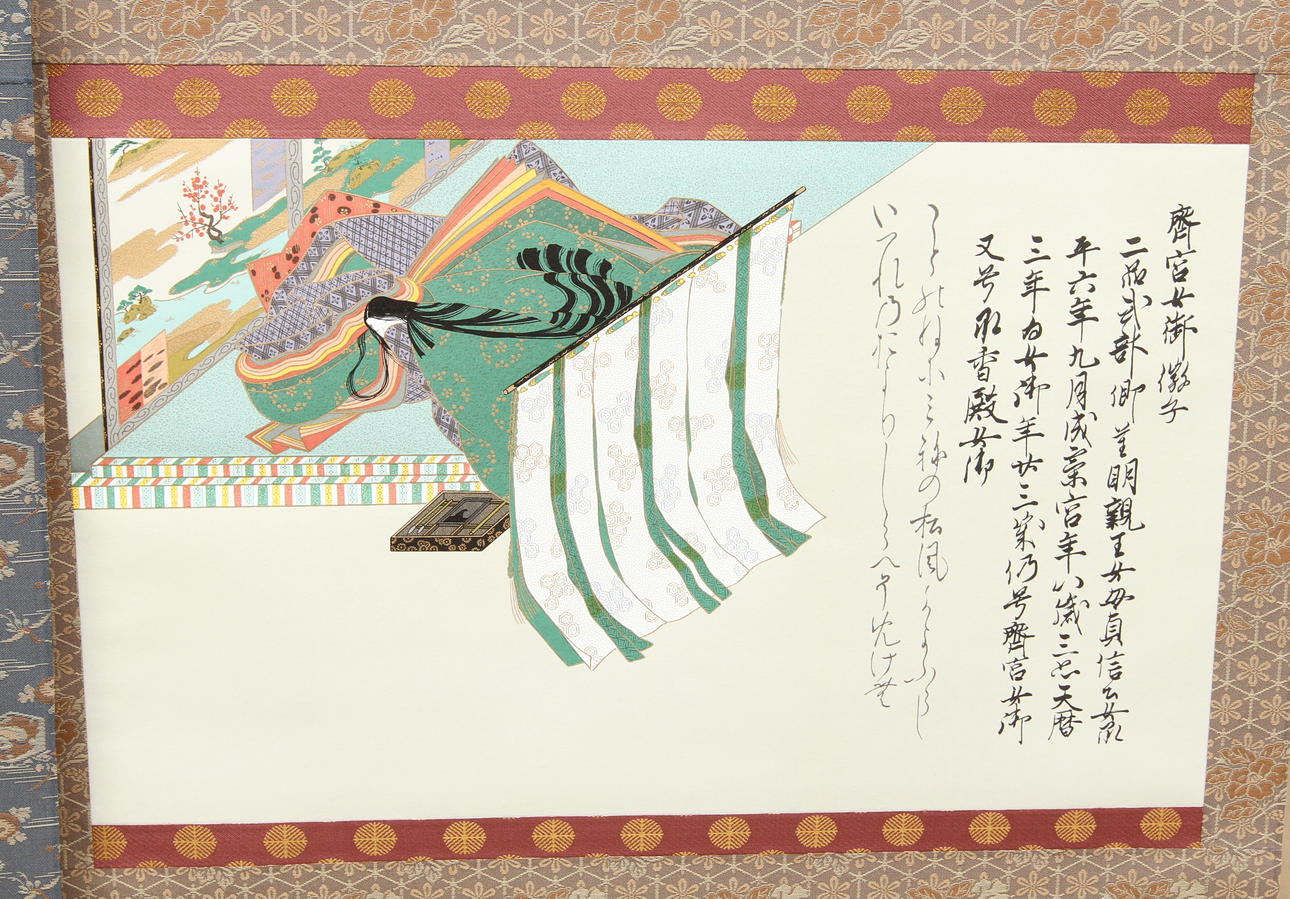 齊宮女御 徽子
二品式部卿重明親王女母貞信公女承
平六年九月為齋宮年八歳三品天暦
三年為女御年廿三歳仍号齊宮女御
又号承香殿女御
ことのねにみねの松風かよふらし
いつれのをよりしらへそめけむ